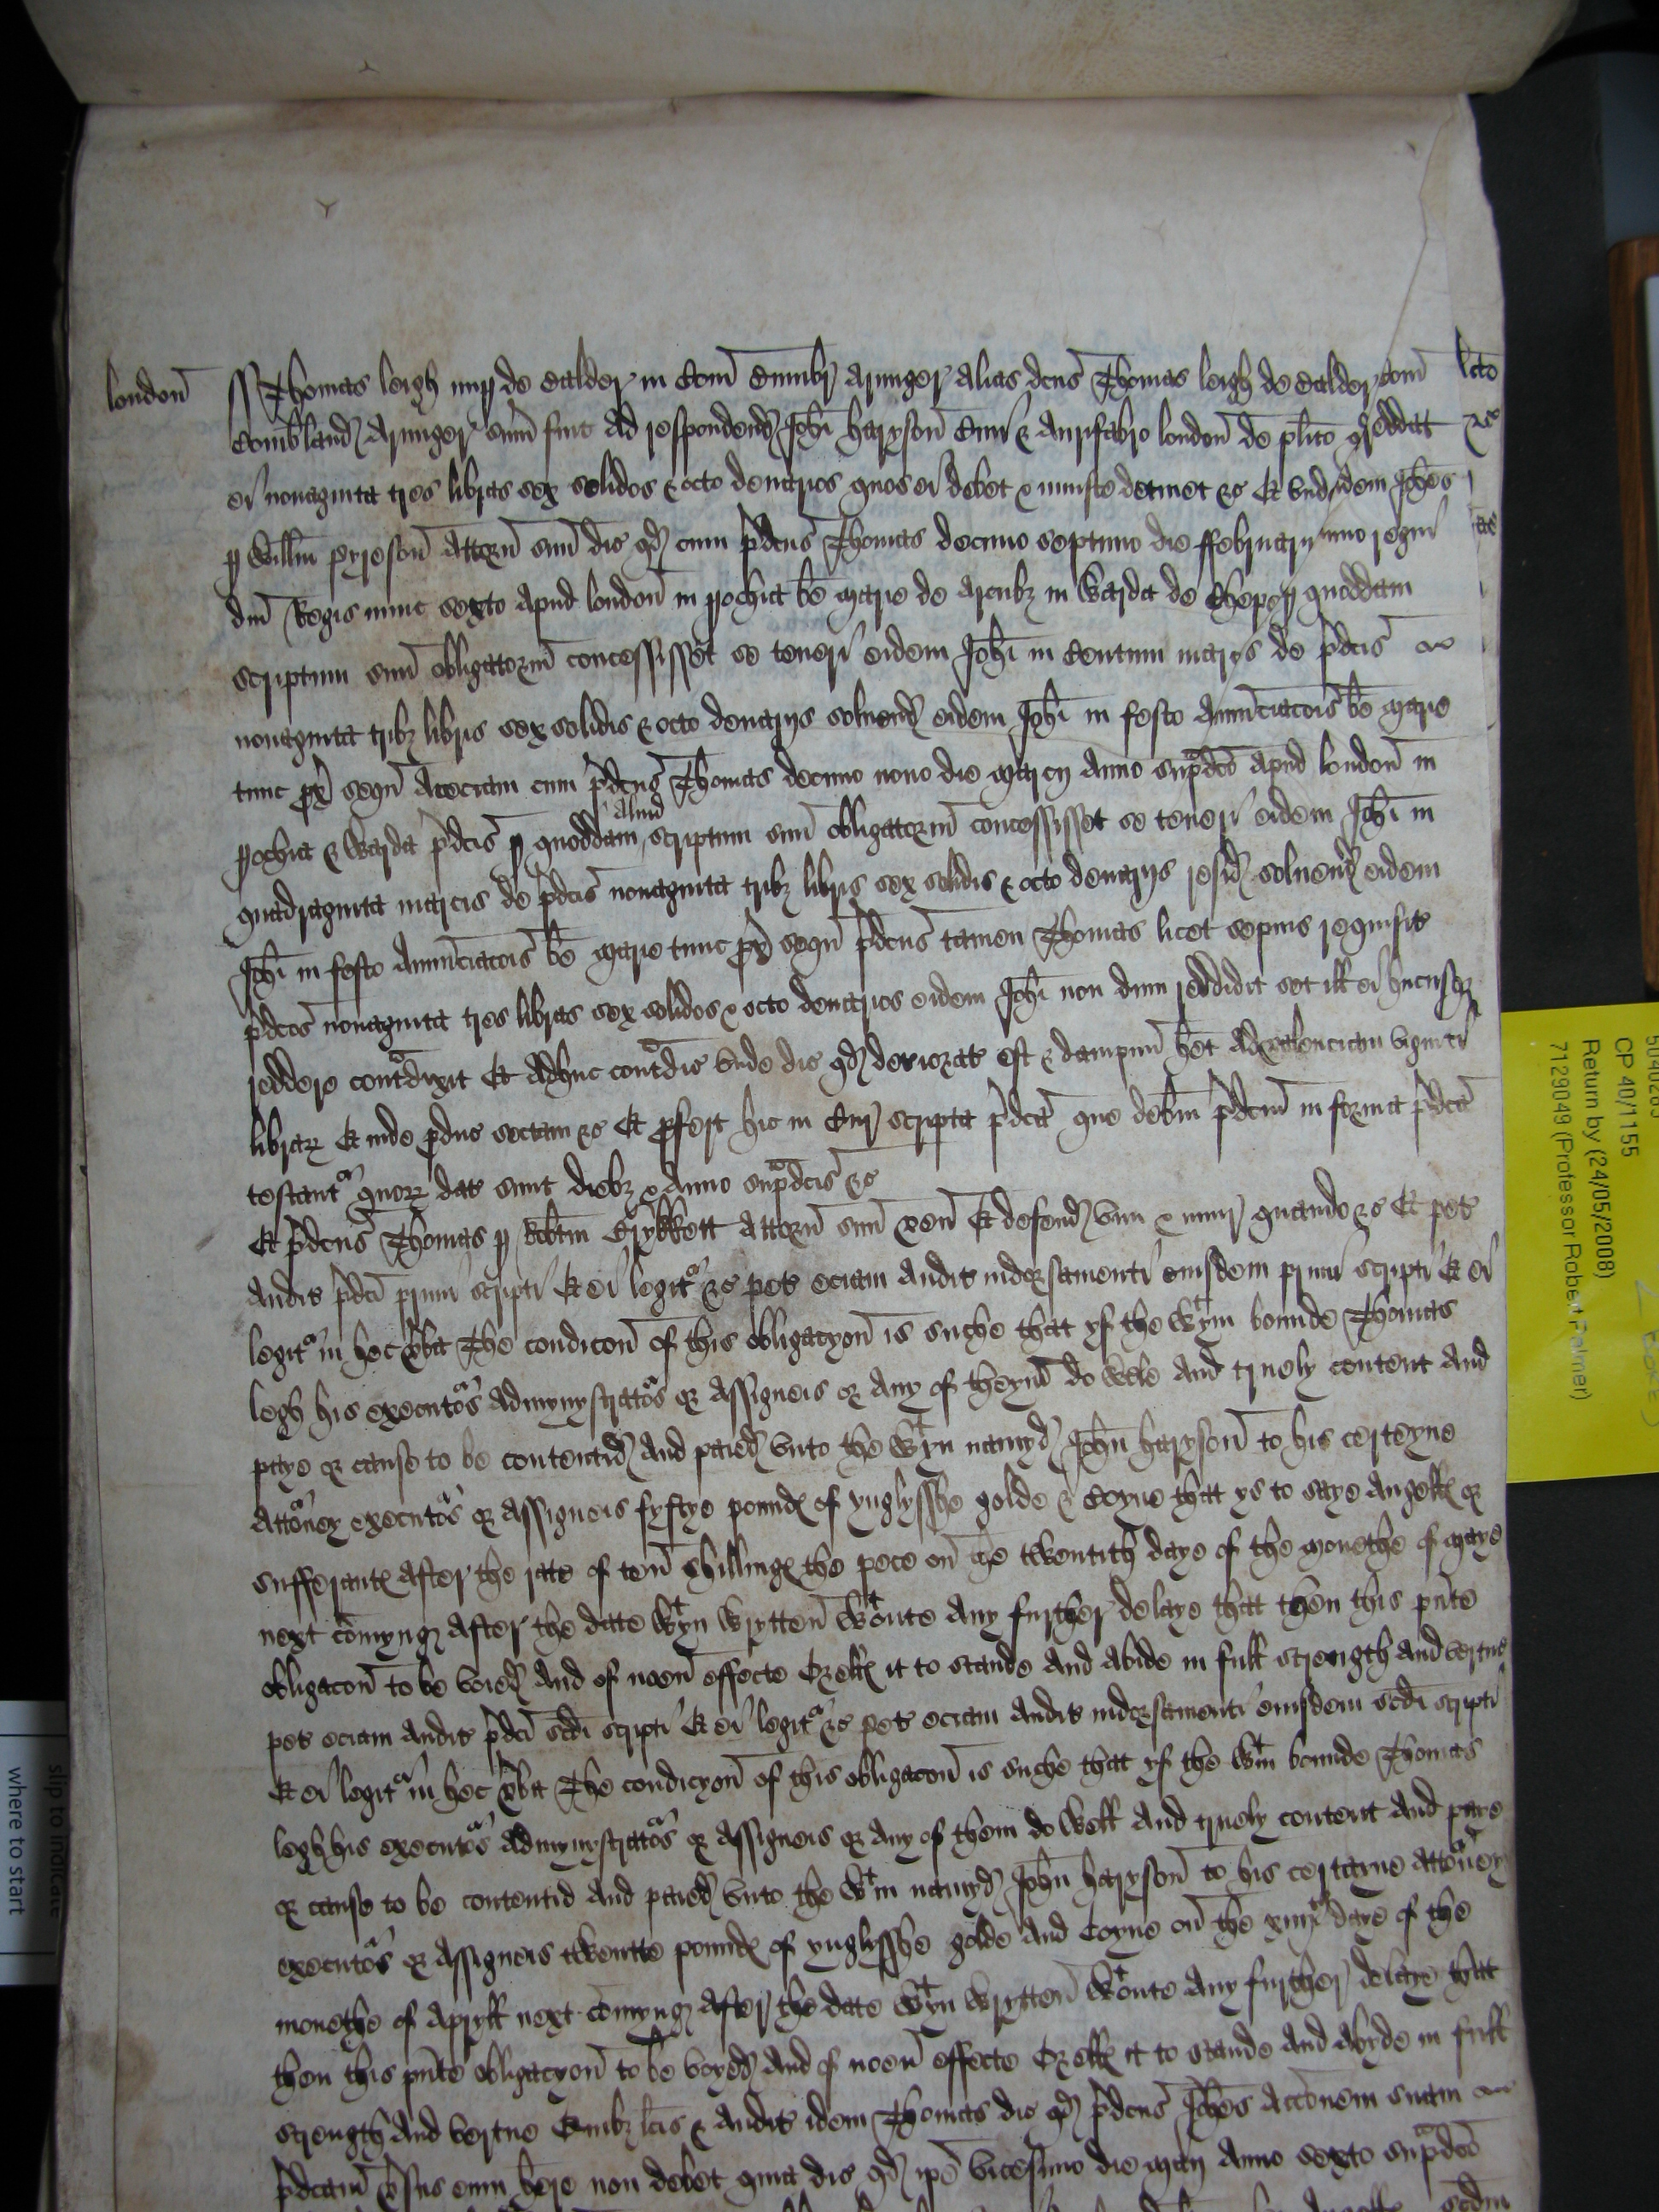 london ss Thomas leigh nup de Calder in Com Cumbr Armiger alias dcus Thomas leigh de Calder Com
Combland Armiger sum fuit ad respondend Johi haryson Civi & Aurifabro london de plito qd reddat
ei nonaginta tres libras sex solidos & octo denarios quos ei debet & iniuste detinet &c Et unde idem Johes
p Willm Attorn suu dic qd cum pdcus Thomas decimo septimo die ffebruarij Anno regni
dni Regis nunc sexto apud london in pochia be Marie de Arcubz in Warda de Chepe p quoddam
scriptum suu obligatoriu concessisset se teneri eidem Johi in Centum marcis de pdcis
nonaginta tribz libris sex solidis & octo denarijs solvend eidem Johi in festo Annuciacois be Marie
tunc px sequ Acectiam cum pdcus Thomas decimo nono die Marcij Anno supdco apud london in
pochia & Warda pdcis p quoddam Aliud scriptum suu obligatoriu concessisset se teneri eidem Johi in
quadraginta marcis de pdcis nonaginta tribz libris sex solidis & octo denarijs resid solvend eidem
Johi in festo Annuciacois be Marie tunc px sequ pdcus tamen Thomas licet sepius requisit
pdcas nonaginta tres libras sex solidos & octo denarios eidem Johi non dum reddidit set ill ei hucusqz
reddere contadixit Et adhuc contadic unde dic qd deteriorat est & dampnu het ad valenciam viginti
librar Et inde pduc sectam &c Et pfert hic in Cur scripta pdca que debm pdcm in forma pdca
testant quor dat sunt diebz & Anno supdcis &c
Et pdcus Thomas p Robtm Attorn suu ven Et defend vim & iniur quando &c Et pet
audit pdci primi scripti Et ei legit &c pet eciam audit indorsamenti eiusdem primi scripti Et ei
legit in hec vba The condicon of this obligacyon is suche that yf the wtin bounde Thomas
legh his executos admynystratos or assigneis or any of theym do wele and truely content and
paye or cause to be contentid and paied unto the wtyn namyd John haryson to his certeyne
Attorney executos or assigneis fyftye pound of ynglysshe golde & Coyne that ys to saye Angell or
sufferant after the rate of ten shilling the pece on the twentith daye of the monethe of Maye
next comyng after the date wtyn wrytten wtoute any further delaye that then this pnte
obligacon to be voied and of noen effecte Or ell it to stande and abide in full strength and vertue
pet eciam audit pdci scdi scripti Et ei legit &c pet eciam audit indorsamenti eiusdem scdi scripti
Et ei legit in hec vba The condicyon of this obligacon is suche that yf the wtin bounde Thomas
legh his executos admynystratos or assigneis or any of them do well and truely content and paye
or cause to be contentid and paied unto the wtin namyd John haryson to his certayne attorney
executos or assigneis twentie pound of ynglysshe golde and Coyne on the daye of the
monethe of Apryll next comyng after the date wtyn wrytten wtoute any further delaye that
then this pnte obligacyon to be voyed and of noen effecte Or ell it to stande and abyde in full
strength and vertue Quibz lcis & audit idem Thomas dic qd pdcus Johes accionem suam
pdcam vsus eum here non debet quia dic qd ipe vicesimo die Maij Anno sexto supdco
CP 40/1155
Return by (24/05/2008)
7129049 (Professor Robert Palmer)
slip to indicate
where to start